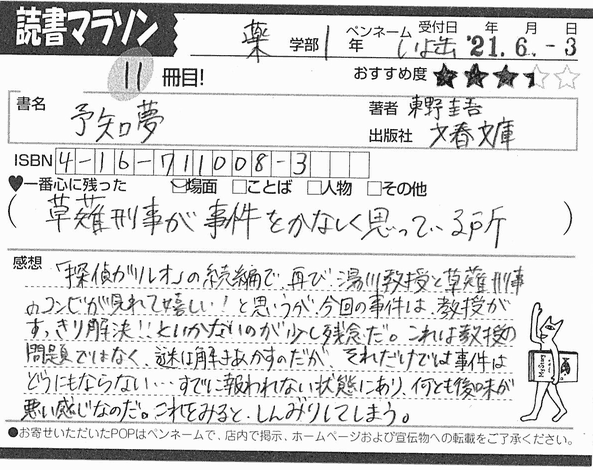 読書マラソン
薬 学部 1 年 ペンネーム いよ缶 受付日 '21.6.-3 年 月 日
11 冊目! おすすめ度 ★★★★☆☆
書名 予知夢 著者 東野圭吾
出版社 文春文庫
ISBN 4-16-711008-3
♥一番心に残った ☑場面 □ことば □人物 □その他
(草薙刑事が事件をかなしく思っている所)
感想 「探偵ガリレオ」の続編で、再び湯川教授と草薙刑事
のコンビが見れて嬉しい!と思うが、今回の事件は、教授が
すっきり解決!!といかないのが少し残念だ。これは教授の
問題ではなく、謎は解きあかすのだが、それだけでは事件は
どうにもならない…すでに報われない状態にあり、何とも後味が
悪い感じなのだ。これをみると、しんみりしてしまう。
●お寄せいただいたPOPはペンネームで、店内で掲示、ホームページおよび宣伝物への転載をご了承ください。